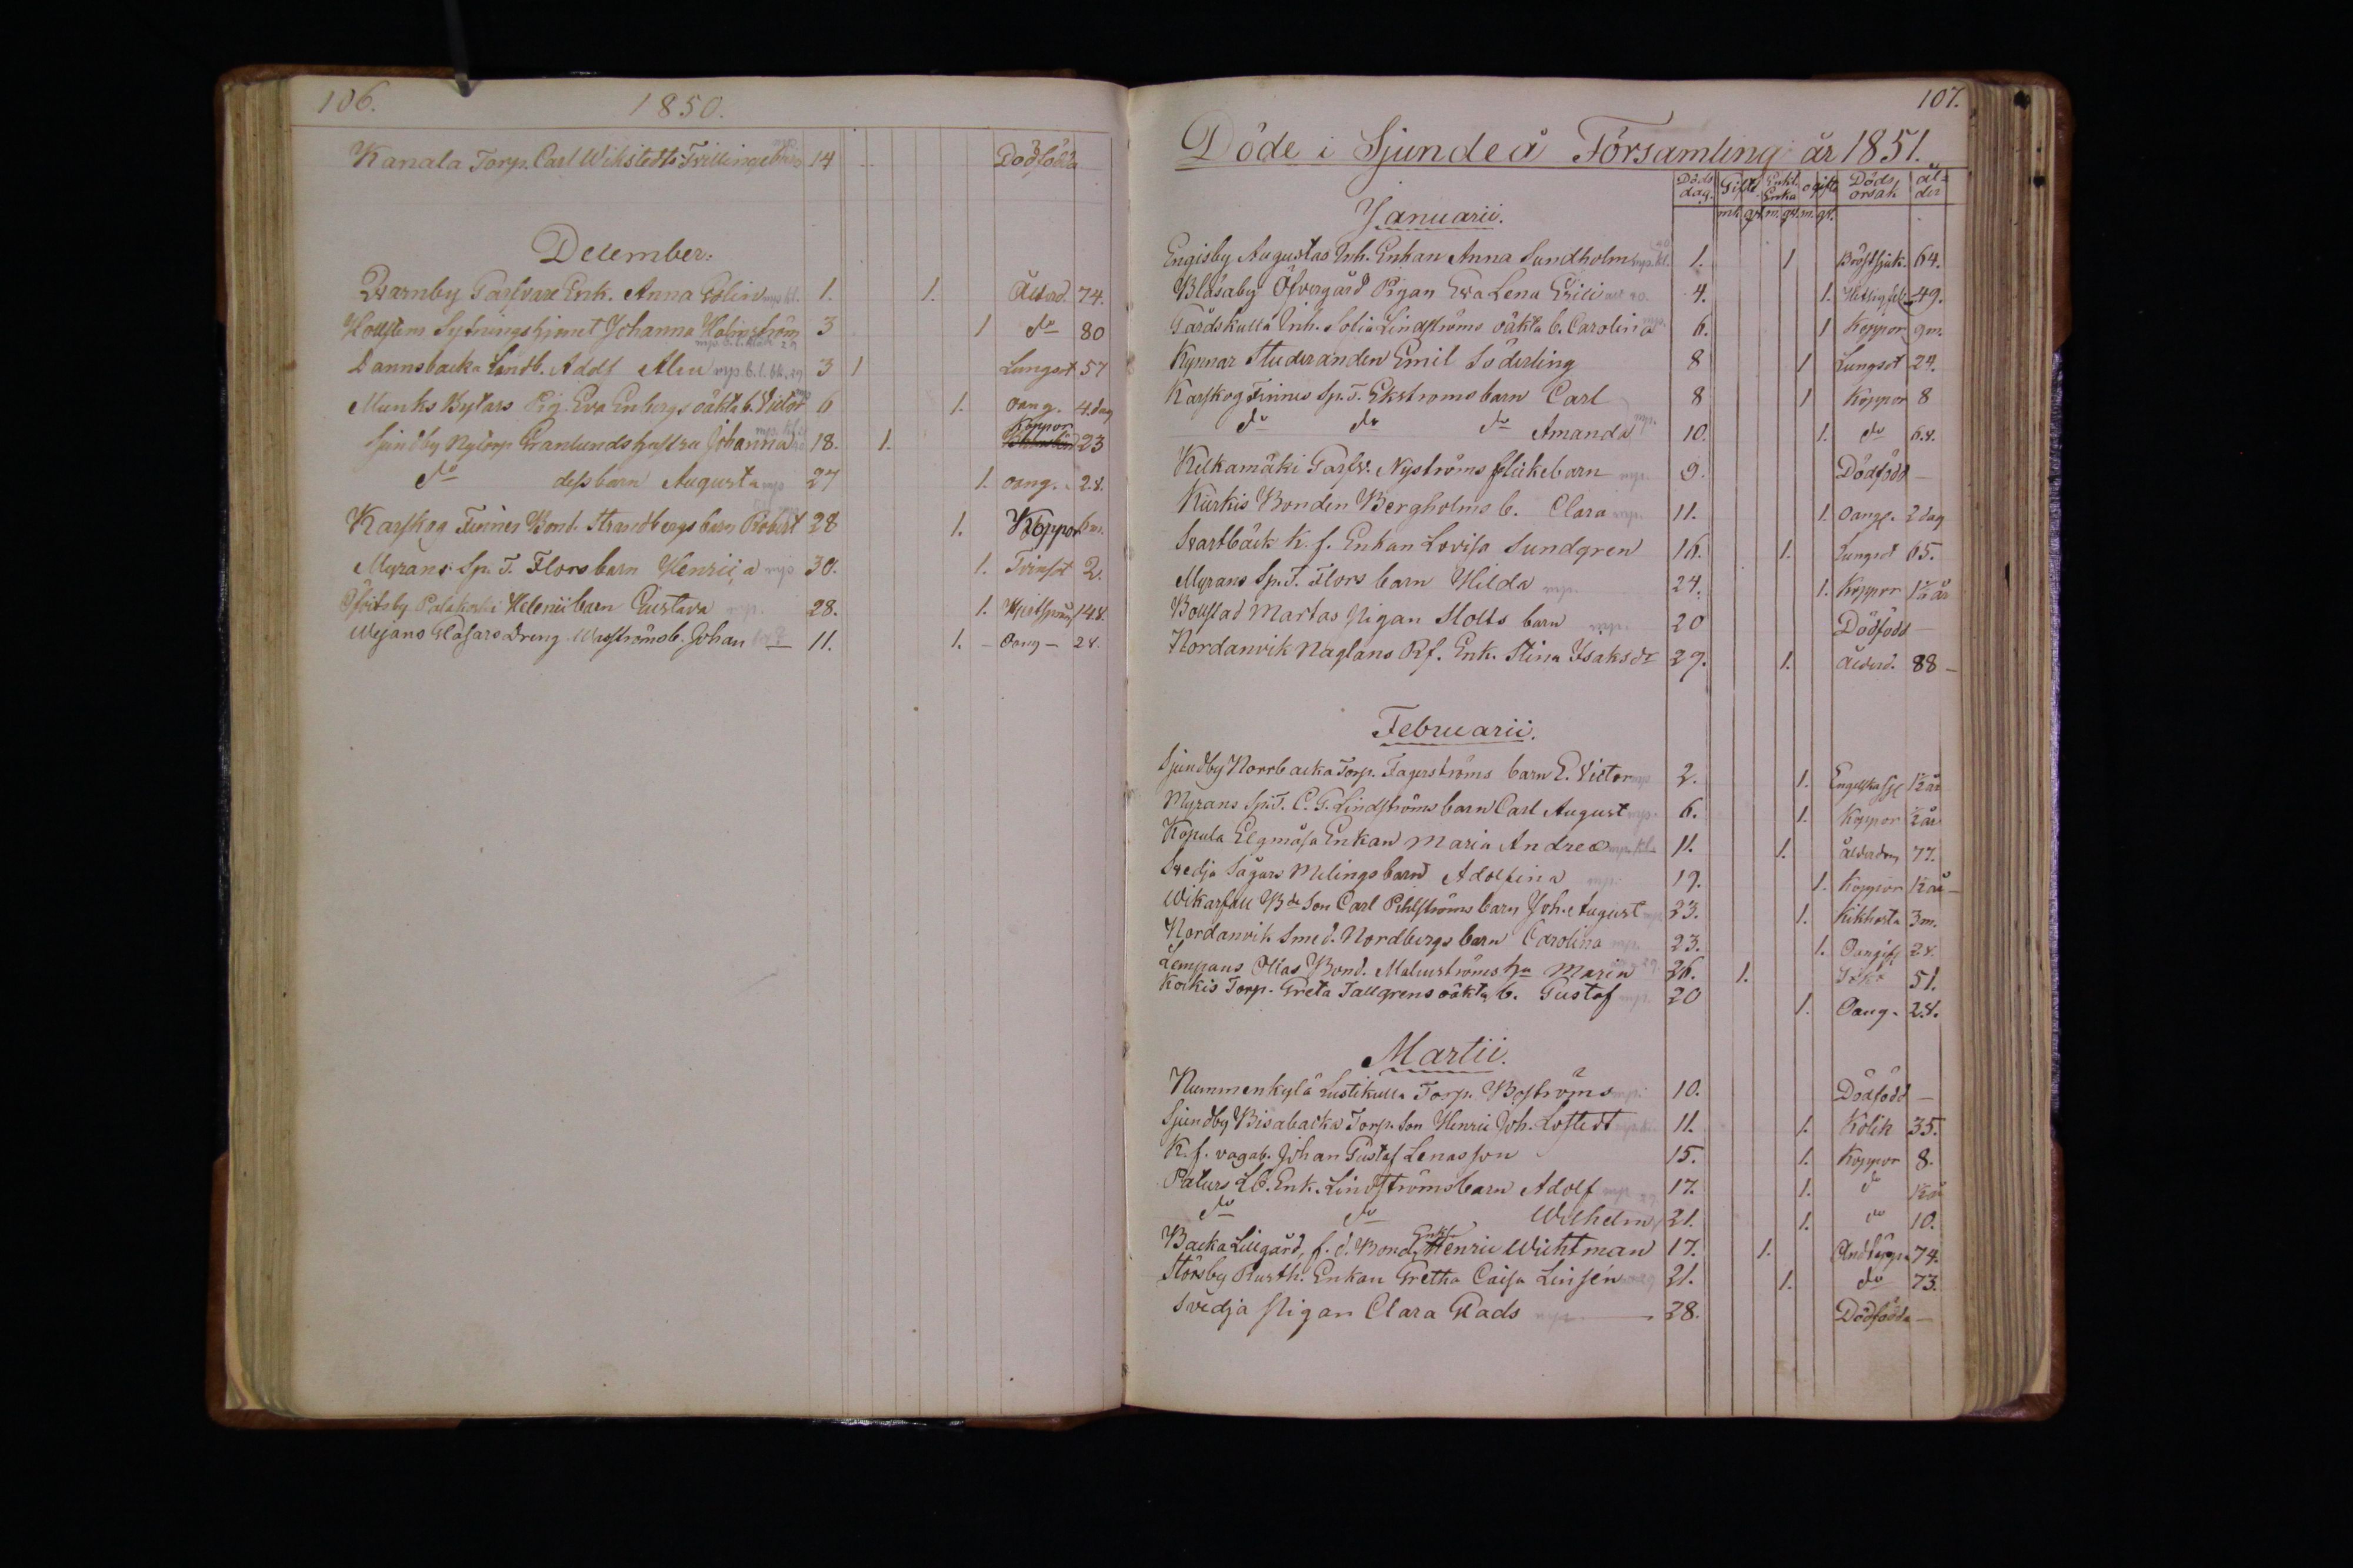 106. 1850.
Kanala Torp. Carl Wikstedts Tvillingebarn 14 Dödfödda
December:
Qvarnby Gastvare Enk. Anna Colin 1. 1. Ålderd. 74.
Hollstens Sytningshjonet Johanna Holmström 3 1 do 80
Dannsbacka Landb. Adolf Alen 3 1 Lungsot 57
Munks Bytars Pig. Eva Enbergs oäkta b. Victor 6 1. oang. 4. dag
Sjundby Nytorp Granlunds hustru Johanna 18. 1. Koppor 23
do dess barn Augusta 27 1. oang. 2.v.
Karskog Finnes Bond. Strandbergs barn Robert 28 1. Koppor 6m.
Myrans Sp. T. Flors barn Henrica 30. 1. Tvinsot 2.
Palakoski Helenii barn Gustava 28. 1. 14.v.
Wejans Glasars Dreng b. Johan 11. 1. Oang 2v.
107.
Döde i Sjundeå Församling år 1851.
Döds dag. Gifte Enkl. Enka ogifte Döds orsak ål= der
mk. qk. m. qk. m. qk.
Januarii.
Engisby Augustas Inh. Enkan Anna Sundholm 1. 1 Bröstsjuk. 64.
Blåsaby Öfvergård Pigan Eva Lena 4. 1. 49.
Gårdskulla Inh. Sofia Lindströms oäkta b. Carolina 6. 1 Koppor 9m.
Kynnar Studeranden Emil Söderling 8 1 Lungsot 24.
Karskog Finnes Sp. T. Ekströms barn Carl 8 1 Koppor 8
do do do Amanda 10. 1. do 6.v.
Kelkamäki Nyströms flickebarn 9. Dödfödd
Kurkis Bonden Bergholms b. Clara 11. 1. Oangf. 2 dag
Svartbäck K. f. Enkan Lovisa Sundgren 16. 1. Lungsot 65.
Myrans Sp. T. Flors barn Hilda 24. 1. Koppor 1½ år
Bollstad Martas Pigan Stolts barn 20 Dödfödd
Nordanvik Naglans Rf. Enk. Stina Isaksdr 29. 1. Ålderd. 88
Februarii.
Sjundby Norrbacka Torp. Fagerströms barn E. Victor 2. 1. Engelska sj. 1½ år
Myrans Sp. T. C. G. Lindströms barn Carl August 6. 1. Koppor ½ år
Kopula Elgmåsa Enkan Maria Andrea 11. 1. ålderdom 77.
Svedja Sågars Melings barn Adolfina 19. 1. Koppor ½ år
Wikarskull Bde Son Carl Pihlströms barn Joh. August 23. 1. Kikhosta 3m.
Nordanvik Smed. Nordbergs barn Carolina 23. 1. Oangif. 2v.
Lempans Ollas Bond. Malmströms hu Maria 26. 1. 51.
Kockis Torp. Greta Tallgrens oäkta b. Gustaf 20 1. Oang. 2.v.
Martii.
Nummenkylä Lustikulla Torp. Boströms 10. Dödfödd
Sjundby Bisabacka Torp. Son Henric Joh. Lofstedt 11. 1. Kolik 35.
K. f. vagab. Johan Gustaf Lenasson 15. 1. Koppor 8.
Paturs Lb. Enk. Lindströms barn Adolf 17. 1. do ½ år
do do Wilhelm 21. 1. do 10.
Backa Lillgård, f. d. Bond. Enkl. Henric Wichtman 17. 1. Andtäppa 74.
Störsby Rusth. Enkan Gretha Caisa Linsén 21. 1. do 73.
Svedja Pigan Clara Glads 28. Dödfödda